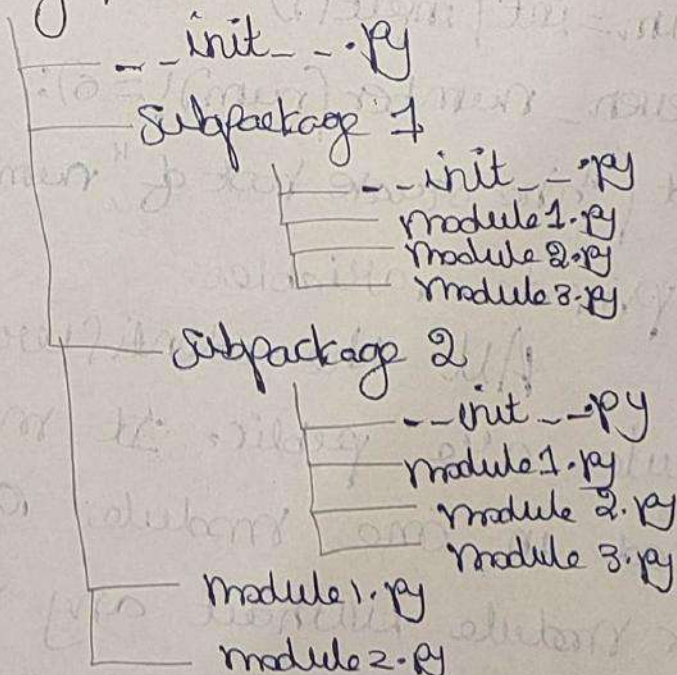 __init__.py
Subpackage 1
__init__.py
module1.py
module 2.py
module 3.py
Subpackage 2
__init__.py
module1.py
module 2.py
module 3.py
module1.py
module2.py